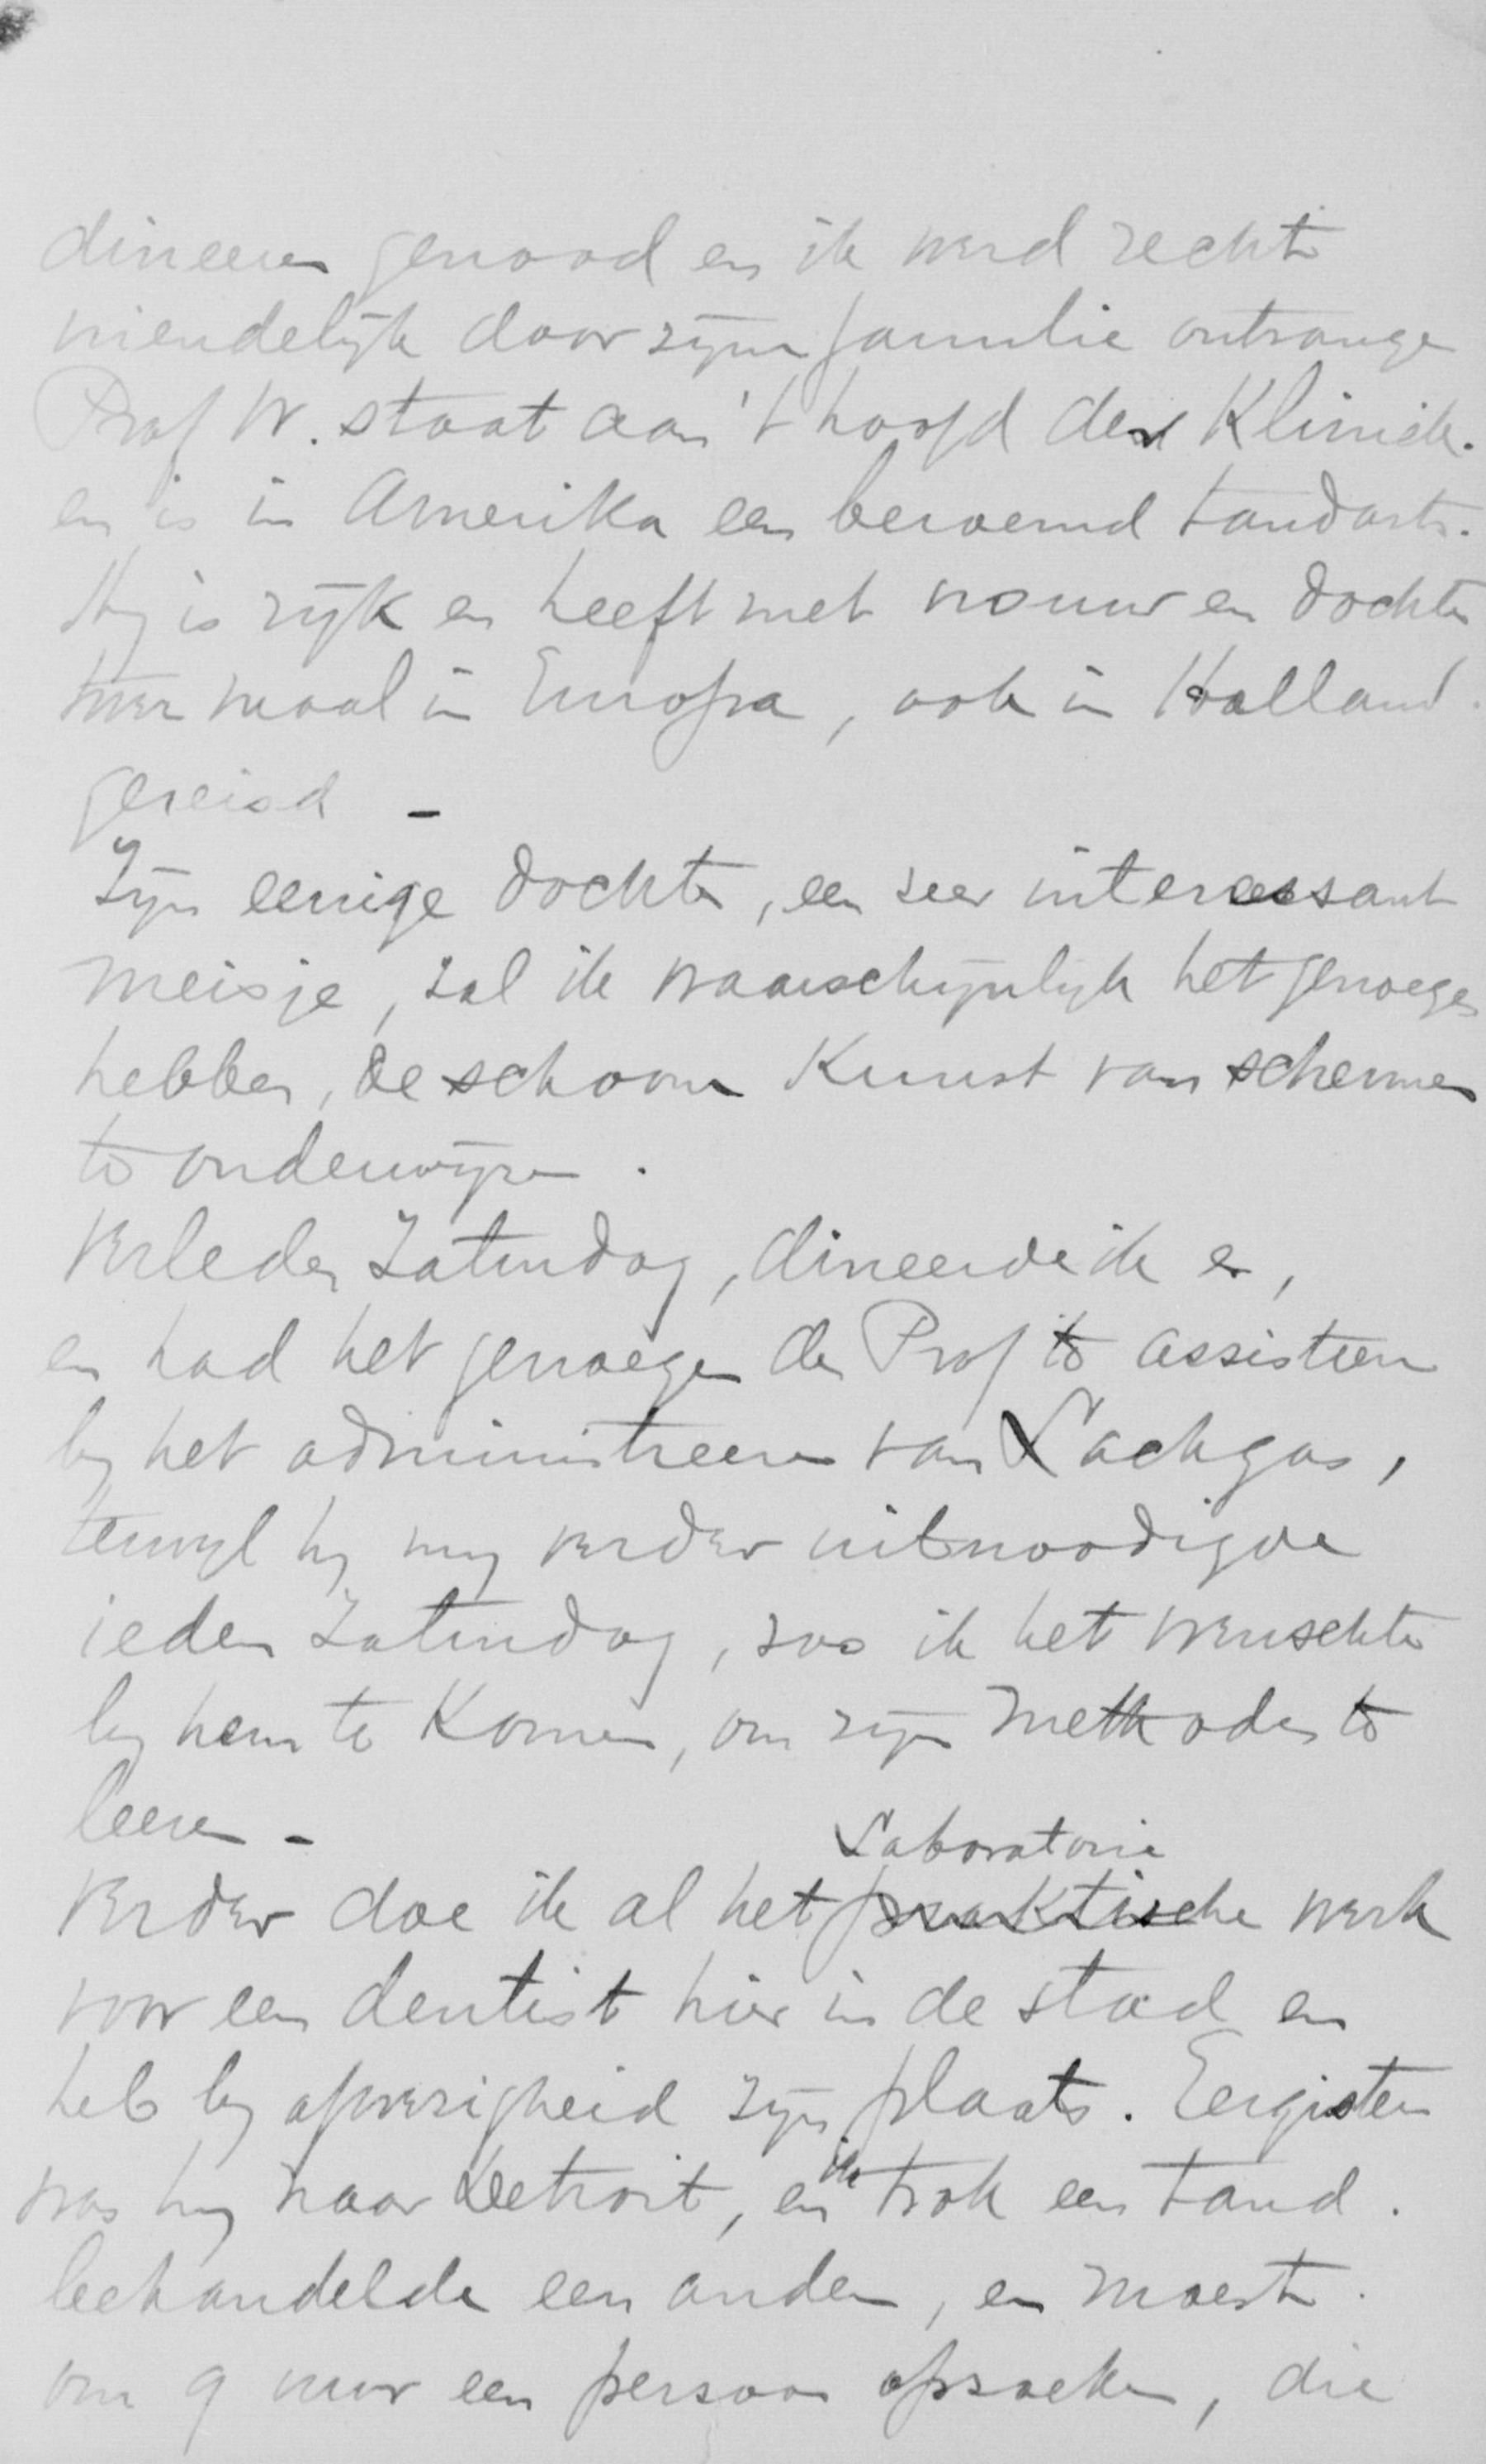 dineeren genood en ik werd rechte
vriendelijk door zijne familie ontvange
Prof W. staat aan 't hoofd der Kliniek.
en is in Amerika een beroemd tandarts.
Hij is rijk en heeft met vrouw en dochter
twee maal in Europa, ook in Holland.
gereisd -
Zijn eenige dochter, een zeer interessant
meisje, zal ik waarschijnlijk het genoegen
hebben, de schoone Kunst van schermen
te onderwijzen.
Verleden Zaturdag, dineerde ik er,
en had het genoegen de Prof te assisteeren
bij het administreeren van Lachgas,
terwijl hij mij verder uitnoodigde
iederen Zaturdag, zoo ik het wenschte
bij hem te Komen, om zijn Methoden te
leeren -
Laboratorie
Verder doe ik al het praktische werk
voor een dentist hier in de stad en
heb bij afwezigheid zijn plaats. Eergisteren
was hij naar Detroit, en ik trok een tand.
behandelde een anderen, en moest.
om 9 uur een persoon opzoeken, die